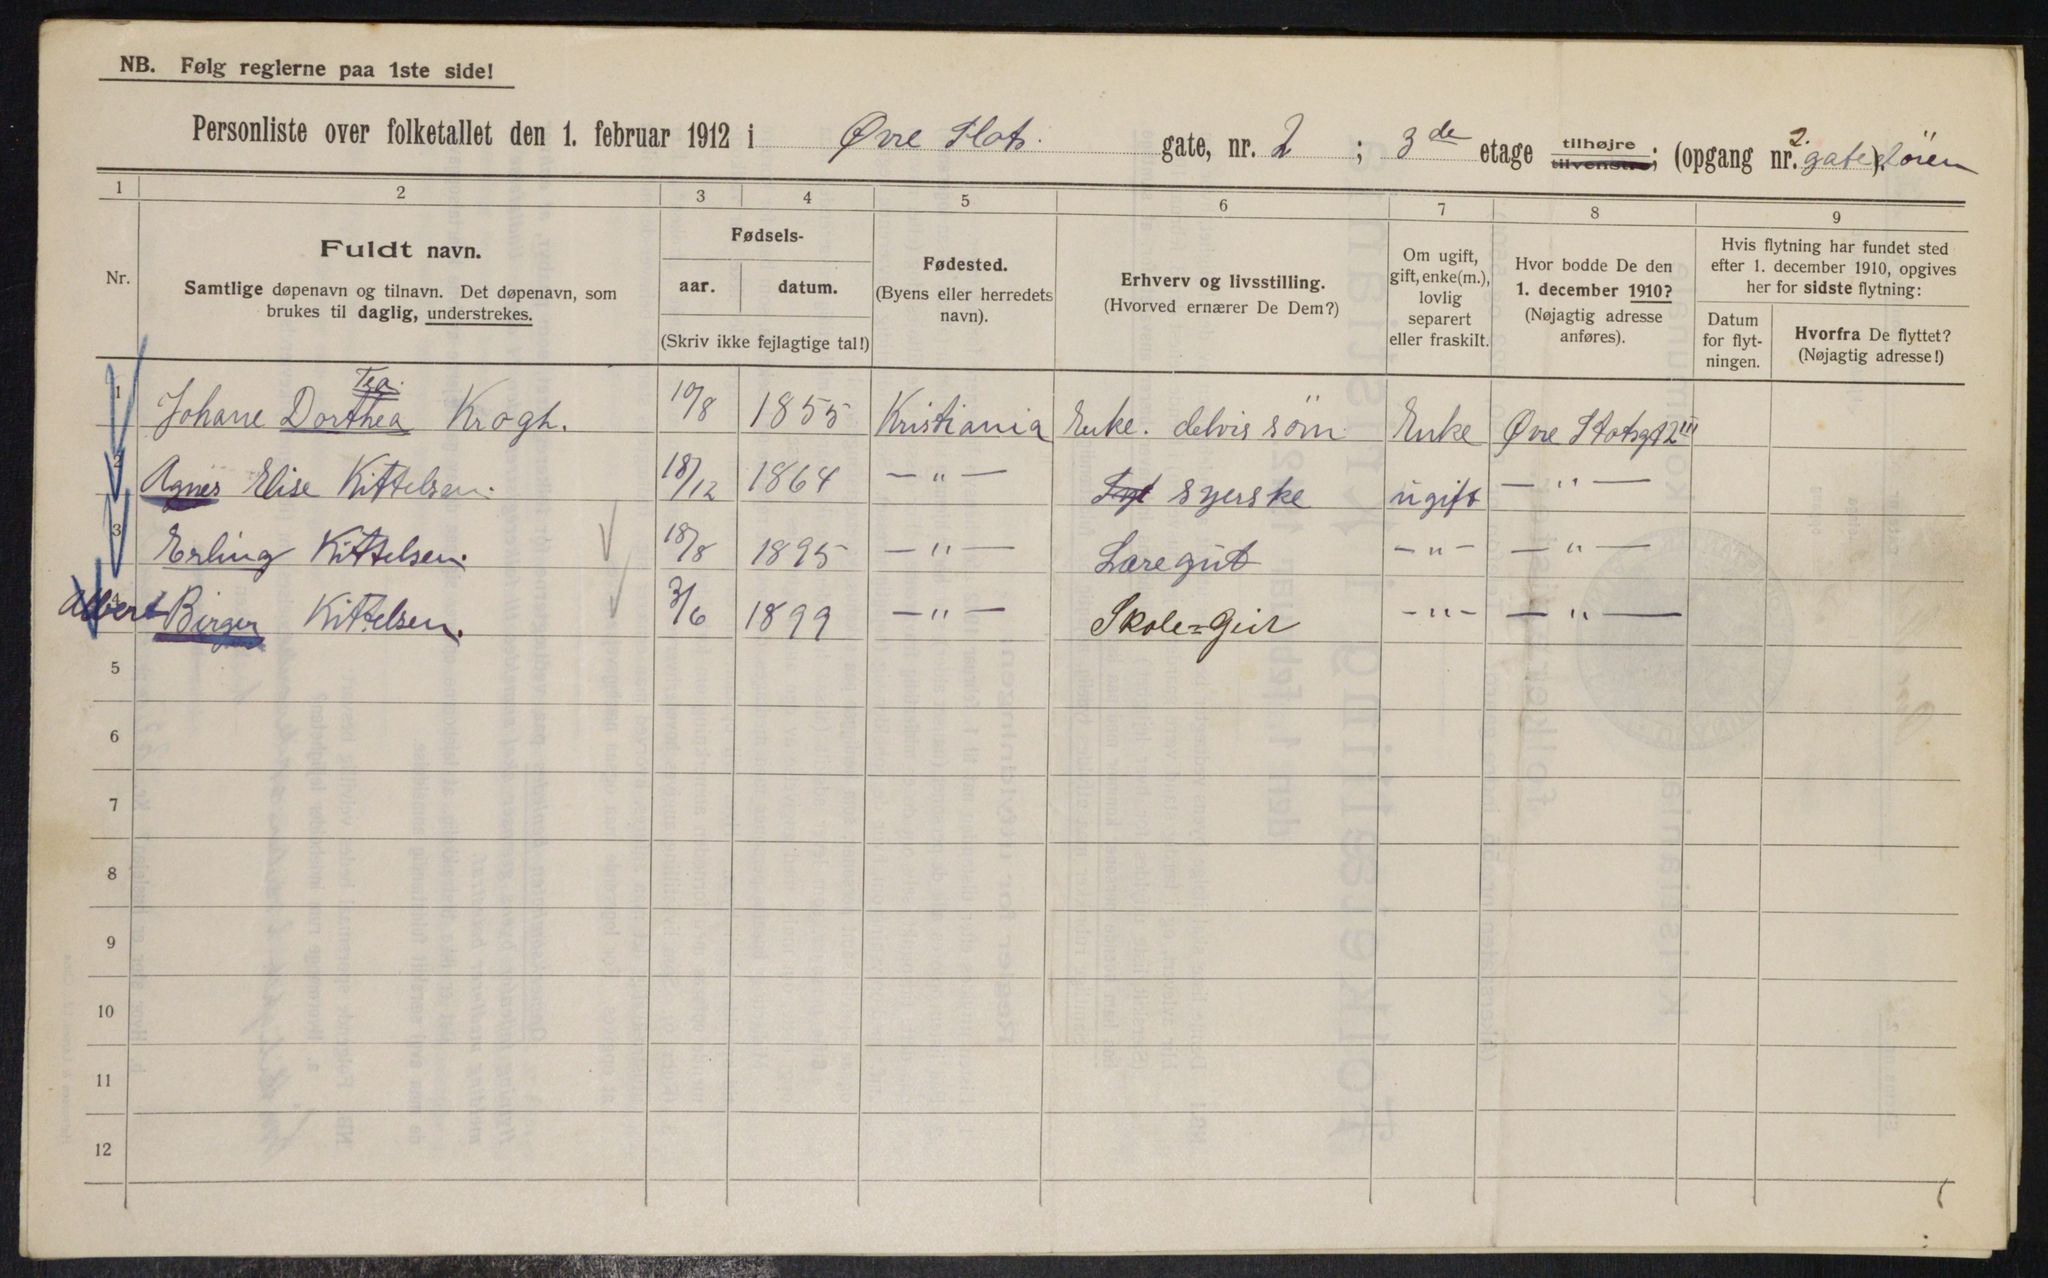 NB. Følg reglerne paa 1ste side!
Personliste over folketallet den 1. februar 1912 i Øvre Slots. gate, nr. 2 ; 3de etage tilhøjre tilvenstre; (opgang nr. 2. gatedören ).
1 2 3 4 5 6 7 8 9
Nr.
Fuldt navn.
Samtlige døpenavn og tilnavn. Det døpenavn, som
brukes til daglig, understrekes.
Fødsels-
aar. datum.
(Skriv ikke fejlagtige tal!)
Fødested.
(Byens eller herredets
navn).
Erhverv og livsstilling.
(Hvorved ernærer De Dem?)
Om ugift,
gift, enke(m.),
lovlig
separert
eller fraskilt.
Hvor bodde De den
1. december 1910?
(Nøjagtig adresse
anføres).
Hvis flytning har fundet sted
efter 1. december 1910, opgives
her for sidste flytning:
Datum
for flyt-
ningen.
Hvorfra De flyttet?
(Nøjagtig adresse!)
Tea.
1 Johane Dorthea Krogh. 10/8 1855 Kristiania Enke. delvis söm Enke Øvre Slotsgt 2 III
2 Agnes Elise Kittelsen. 18/12 1864 — „ — syerske ugift — „ —
3 Erling Kittelsen. 18/8 1895 — „ — Læregut — „ — — „ —
4 Albert Birger Kittelsen. 3/6 1899 — „ — Skole=Gut — „ — — „ —
5
6
7
8
9
10
11
12